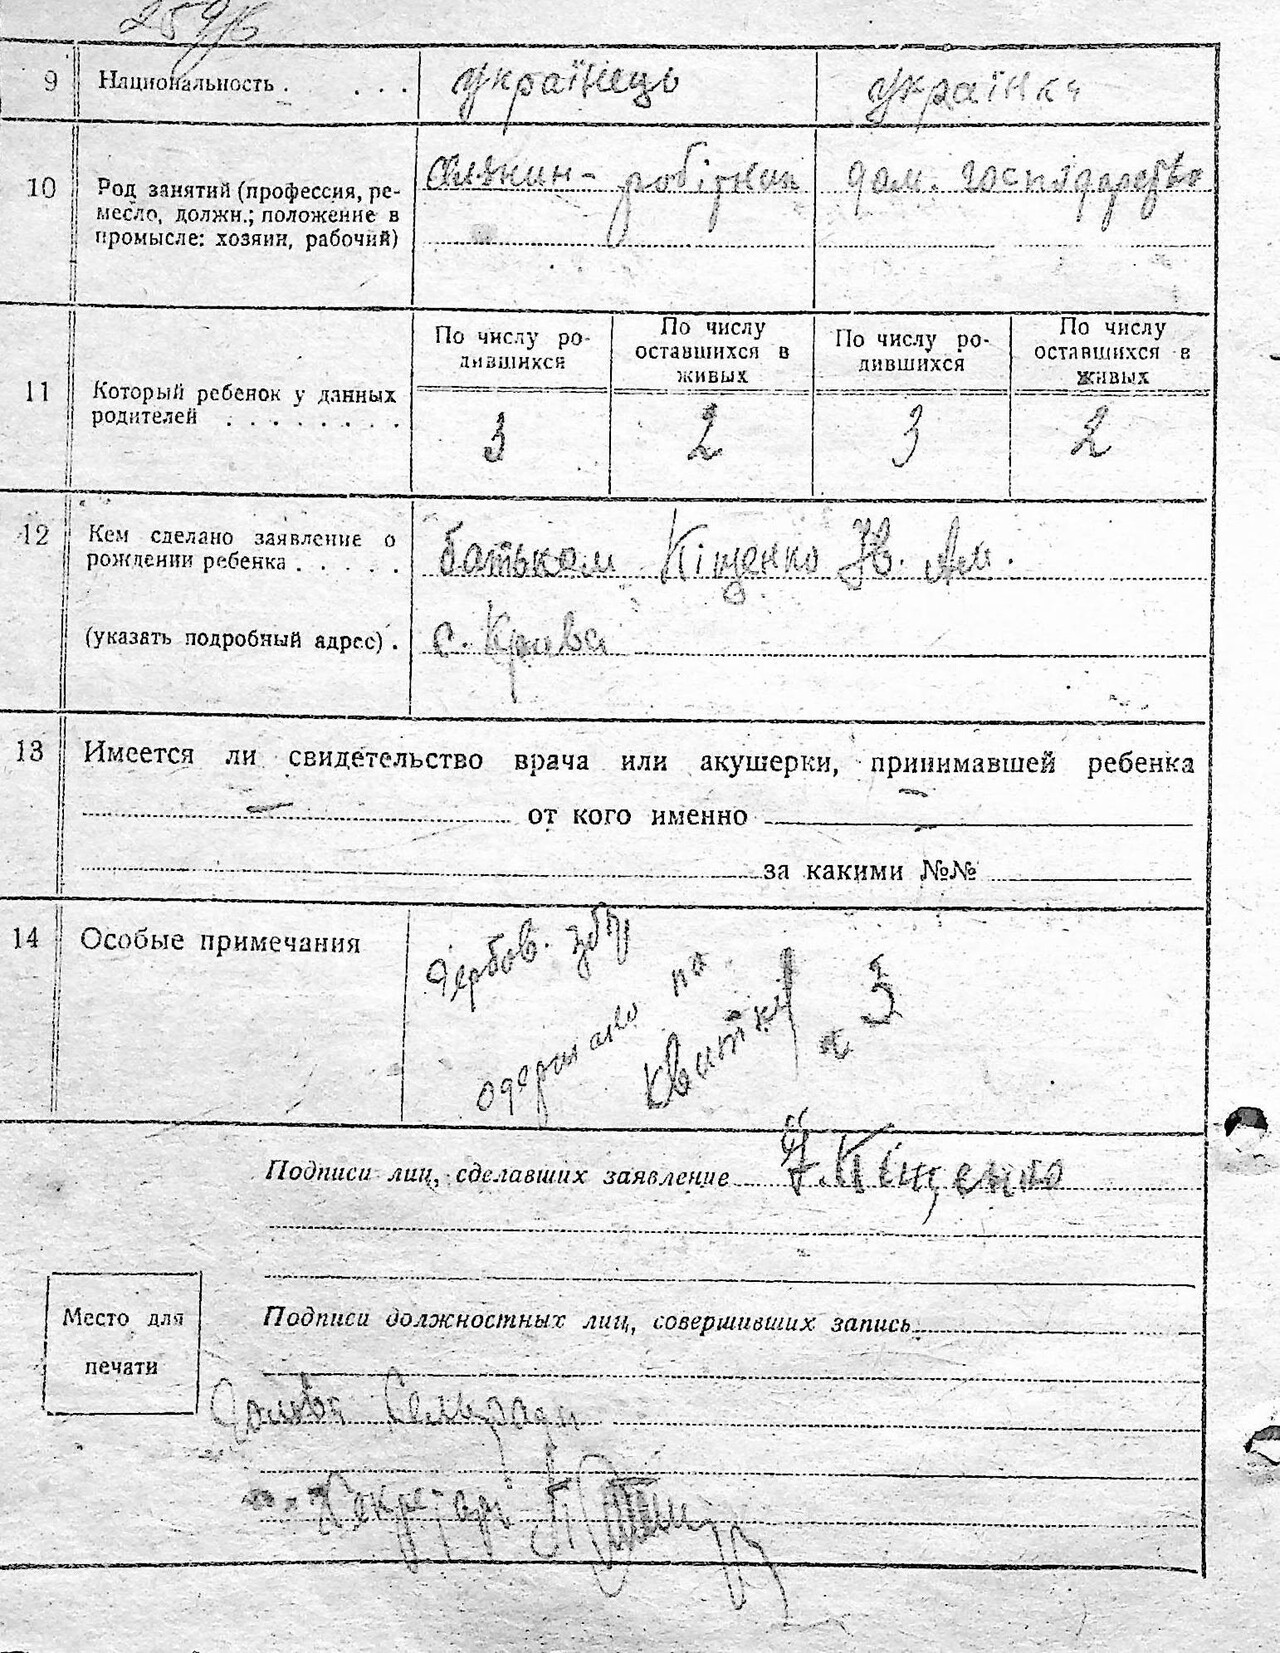 9 Национальность . . . . українець українка
10 Род занятий (профессия, ре-
месло, должн.; положение в
промысле: хозяин, рабочий)
селянин- робітник дом. господарство
11 Который ребенок у данных
родителей . . . . . . . .
По числу ро-
дившихся
По числу
оставшихся в
живых
По числу ро-
дившихся
По числу
оставшихся в
живых
3 2 3 2
12 Кем сделано заявление о
рождении ребенка . . . . .
батьком Кіщенко Ів.
(указать подробный адрес) . с. Крива
13 Имеется ли свидетельство врача или акушерки, принимавшей ребенка
— от кого именно —
за какими №№
14 Особые примечания
гербов. збір
одержано по
квитку № 3
Подписи лиц, сделавших заявление І. Кіщенко
Подписи должностных лиц, совершивших запись
Место для
печати
Голова Сельради
Секретарь